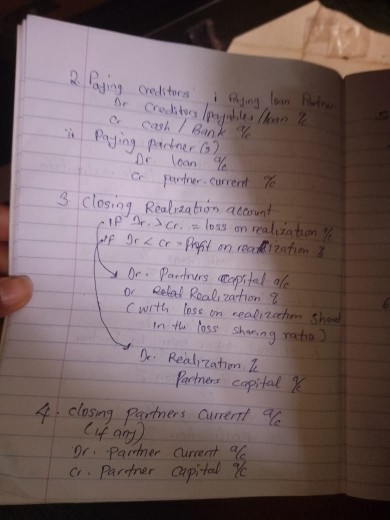 2 Paying creditors i Paying loan Partner
Dr creditors/payables/loan a/c
Cr cash/Bank a/c
ii Paying partner(s)
Dr loan a/c
Cr partner current a/c
3 closing Realization account
- IF Dr. > Cr. = loss on realization a/c
- IF Dr < Cr = Profit on realization a/c
Dr. Partners capital a/c
Realization a/c
(with loss on realization shared
in the loss sharing ratio)
Dr. Realization a/c
Partners capital a/c
4. closing partners current a/c
(if any)
Dr. Partner current a/c
Cr. Partner capital a/c